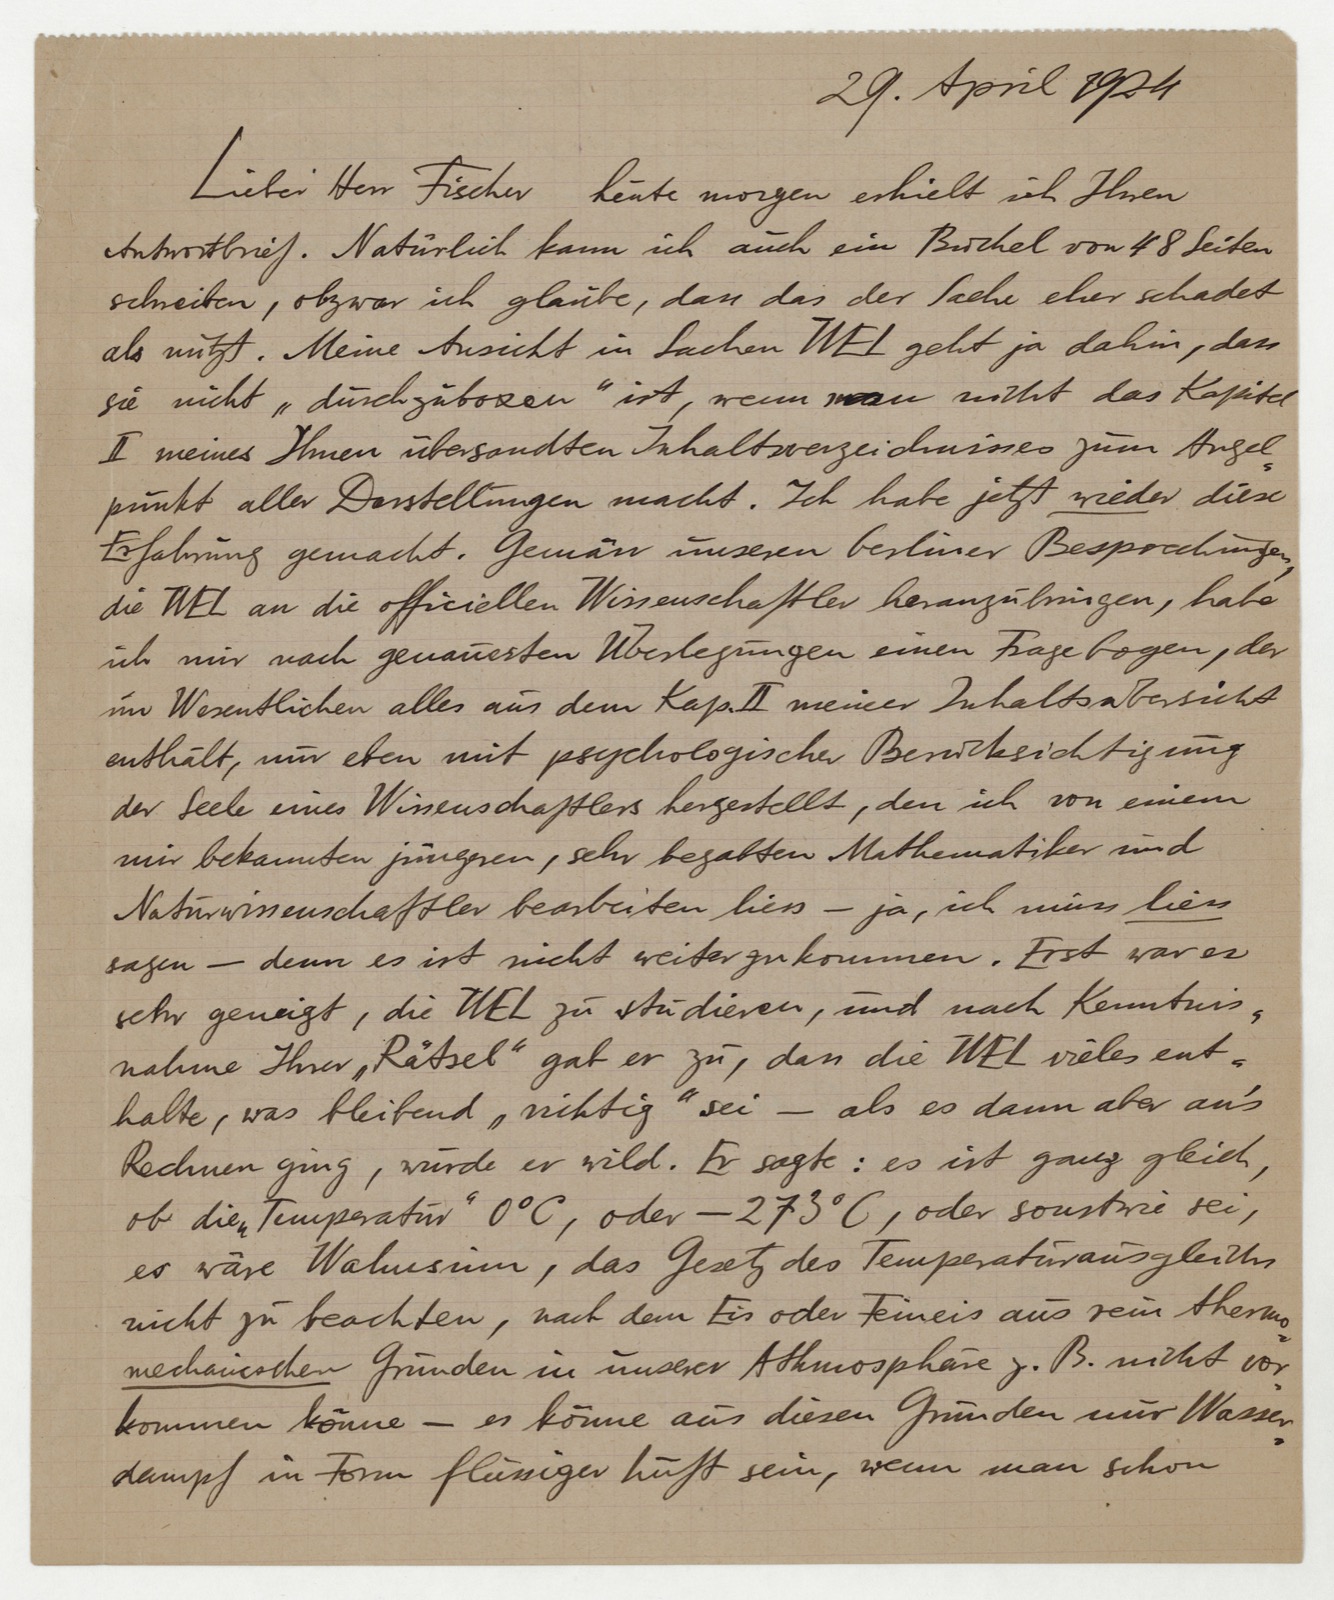 29. April 1924
Lieber Herr Fischer heute morgen erhielt ich Ihren
Antwortbrief. Natürlich kann ich auch ein Büchel von 48 Seiten
schreiben, obzwar ich glaube, dass das der Sache eher schadet
als nützt. Meine Ansicht in Sachen WEL geht ja dahin, dass
sie nicht „durchzuboxen“ ist, wenn man nicht das Kapitel
II meines Ihnen übersandten Inhaltsverzeichnisses zum Angel-
punkt aller Darstellungen macht. Ich habe jetzt wieder diese
Erfahrung gemacht. Gemäss unseren berliner Besprechungen,
die WEL an die officiellen Wissenschaftler heranzubringen, habe
ich mir nach genauesten Überlegungen einen Fragebogen, der
im Wesentlichen alles aus dem Kap. II meiner Inhaltsübersicht
enthält, nur eben mit psychologischer Berücksichtigung
der Seele eines Wissenschaftlers hergestellt, den ich von einem
mir bekannten jüngeren, sehr begabten Mathematiker und
Naturwissenschaftler bearbeiten liess – ja, ich muss liess
sagen – denn es ist nicht weiterzukommen. Erst war er
sehr geneigt, die WEL zu studieren, und nach Kenntnis-
nahme Ihrer „Rätsel“ gab er zu, dass die WEL vieles ent-
halte, was bleibend „richtig“ sei – als es dann aber an's
Rechnen ging, wurde er wild. Er sagte: es ist ganz gleich,
ob die „Temperatur“ 0°C, oder –273°C, oder sonstwie sei,
es wäre Wahnsinn, das Gesetz des Temperaturausgleichs
nicht zu beachten, nach dem Eis oder Feineis aus rein thermo-
mechanischen Gründen in unserer Athmosphäre z. B. nicht vor-
kommen könne – es könne aus diesen Gründen nur Wasser-
dampf in Form flüssiger Luft sein, wenn man schon